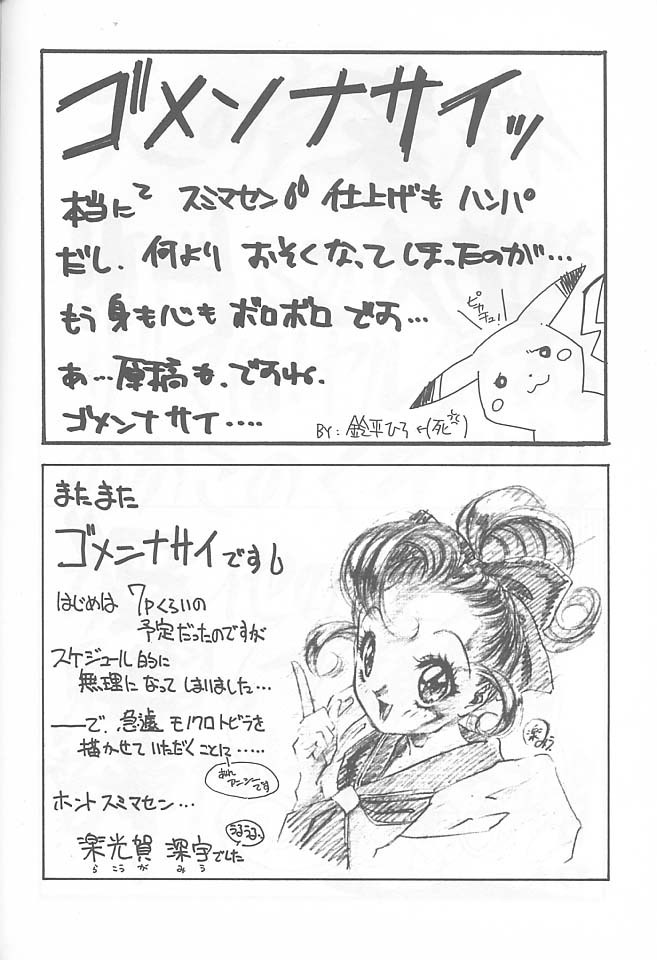 ゴメンナサイッ
本当にて スミマセン 仕上げも ハンパ
だし、何より おそくなってしまったのが…
もう 身も心も ボロボロ です…
あ…原稿も、ですね、
ゴメンナサイ‥‥
ピカチュ!
BY: 鈴平ひろ ←(死)
またまた
ゴメンナサイですし
はじめは 7Pくらいの
予定だったのですが
スケジュール的に
無理になってしまいました…
――で、急遽 モノクロトビラを
描かせていただくことに‥‥‥
アニシーです
ホントスミマセン…
うるうる、
楽光賀 深宇でした
らこうが みう
楽みう